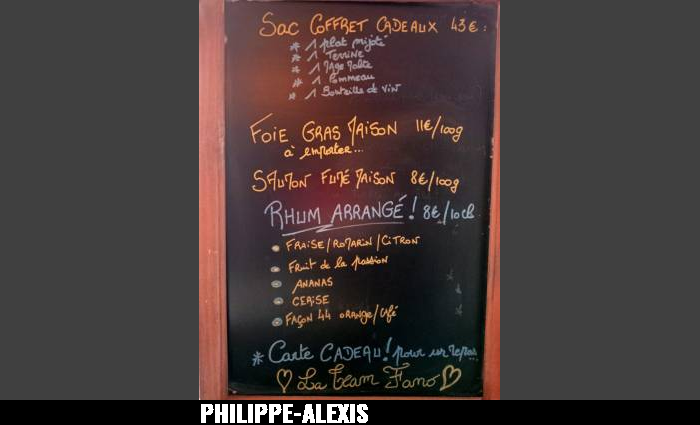 SAC COFFRET CADEAUX 43€ :
* 1 plat mijoté
* 1 TERRINE
* 1
* 1 Pommeau
* 1 Bouteille de VIN
FOIE GRAS MAISON 11€/100g
à emporter...
SAUMON FUMÉ MAISON 8€/100g
RHUM ARRANGÉ ! 8€/10cl
FRAISE/ROMARIN/CITRON
Fruit de la passion
ANANAS
CERISE
FAÇON 44 ORANGE/Café
* Carte CADEAU ! pour un repas...
La team Fano
PHILIPPE-ALEXIS